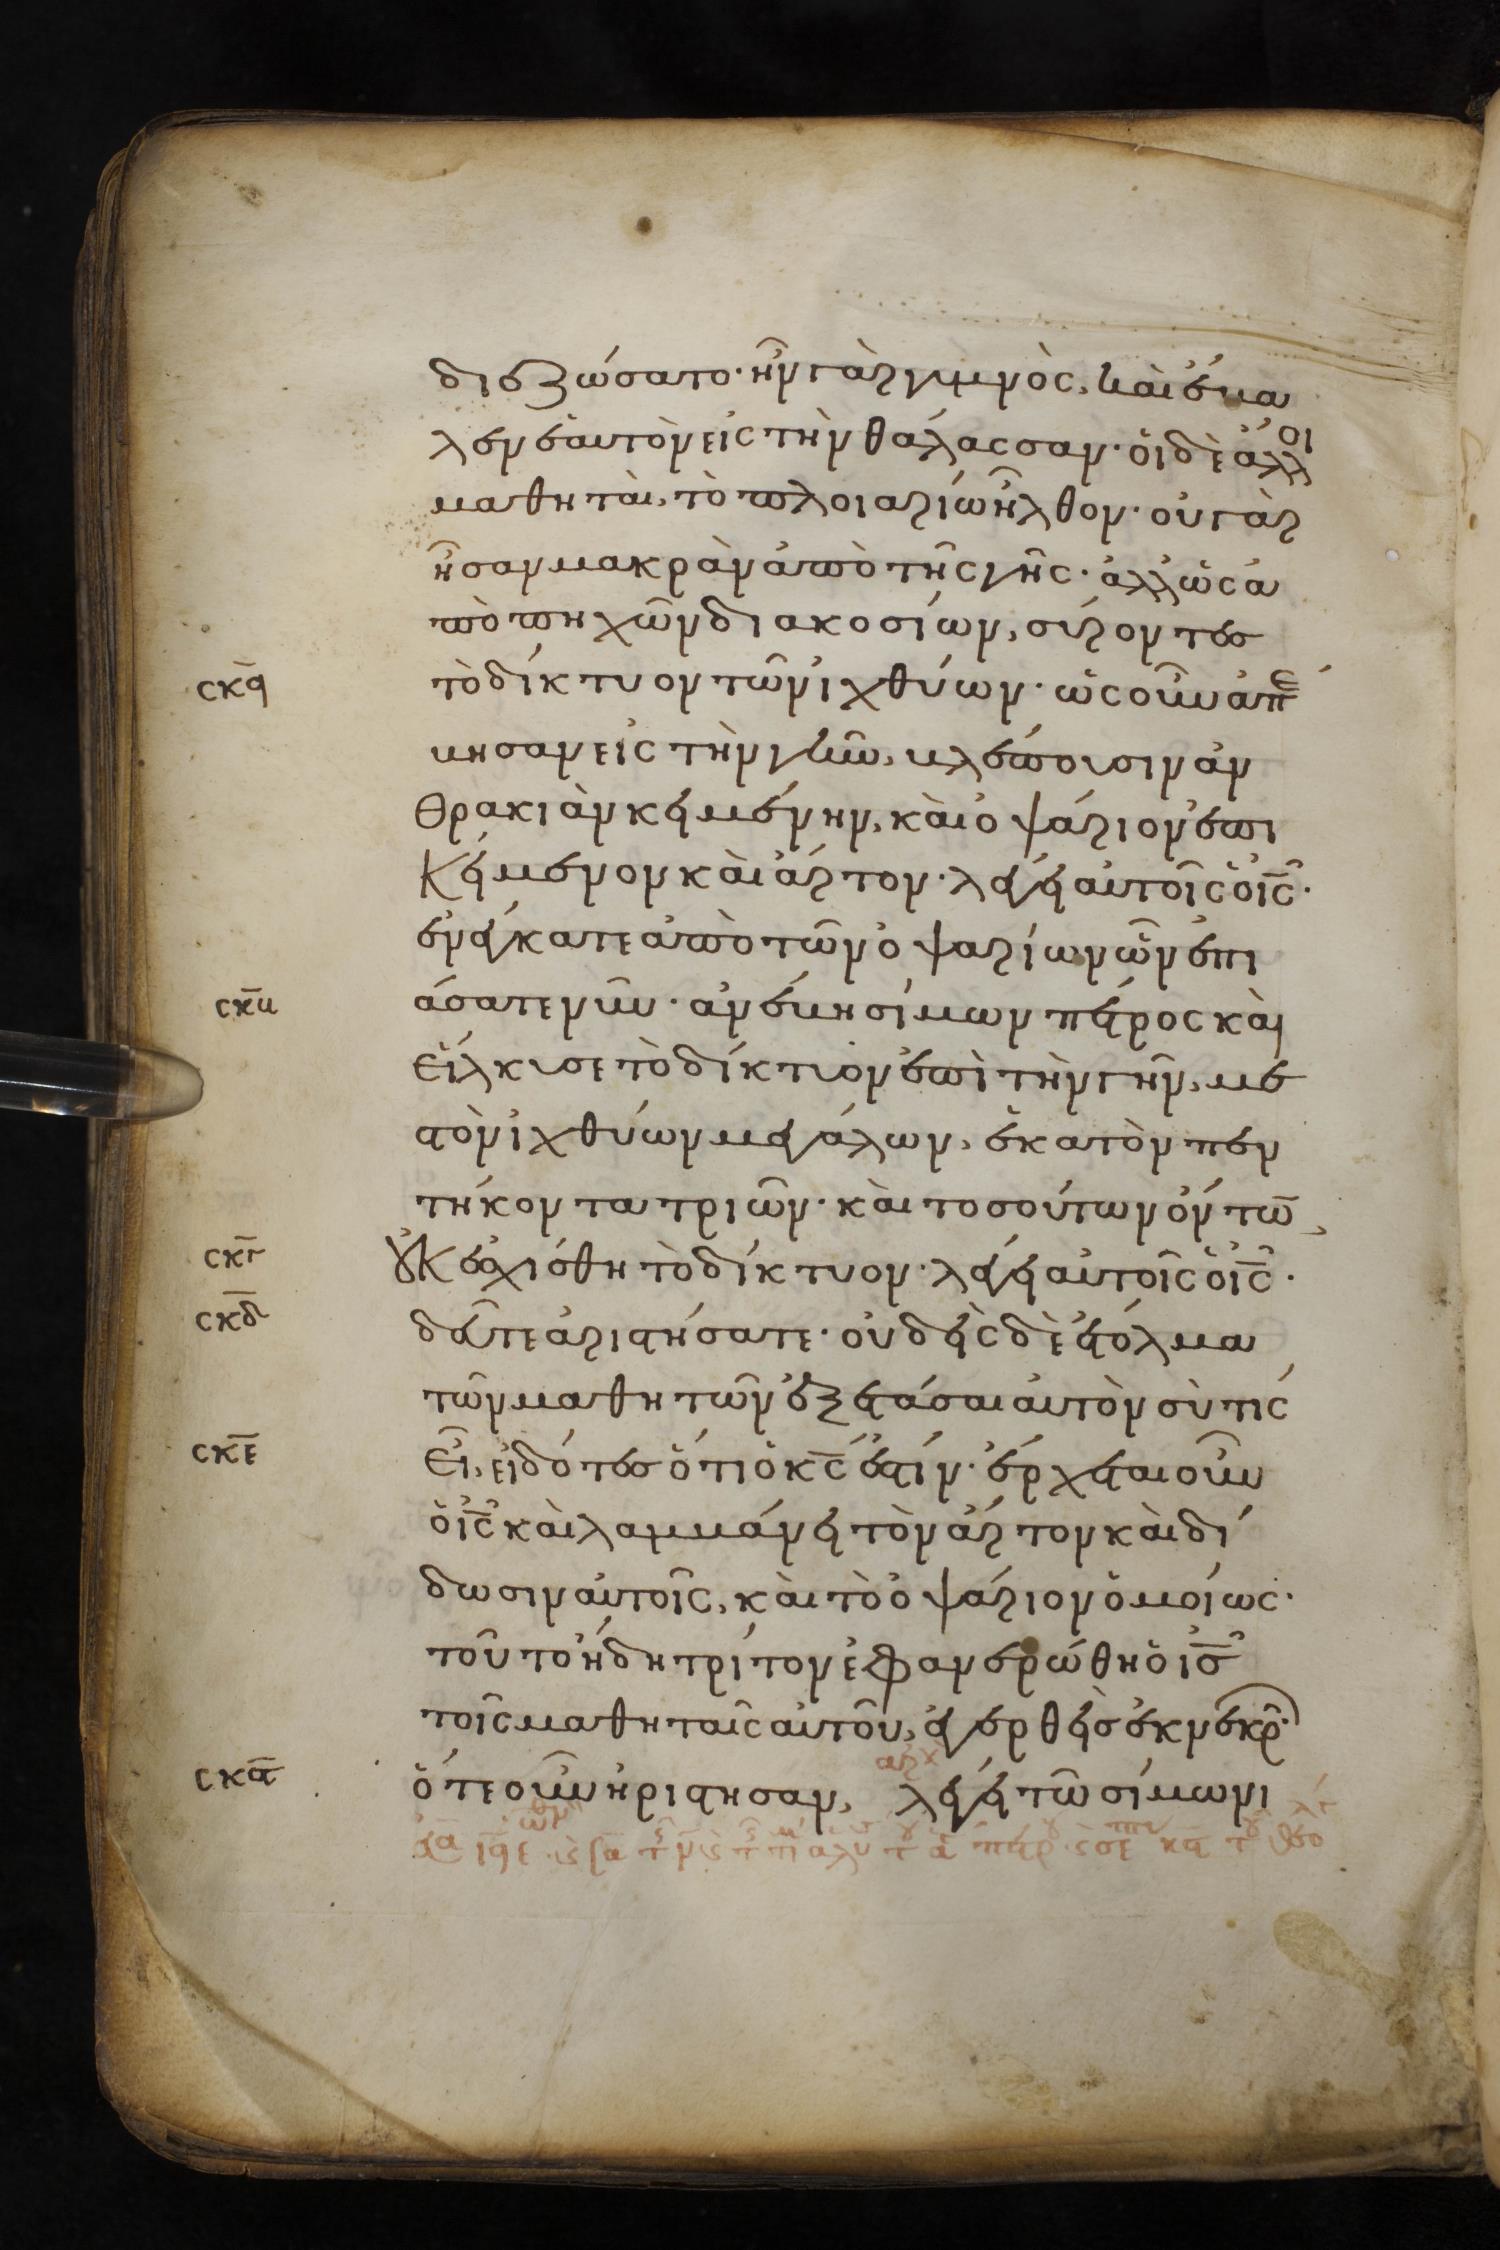 διεζώσατο· ἦν γὰρ γυμνὸς, καὶ ἔβα
λεν ἑαυτὸν εἰς τὴν θάλασσαν· οἱ δὲ ἄλλοι
μαθηταὶ, τὸ πλοιαρίω ἦλθον· οὐ γὰρ
ἦσαν μακρὰν ἀπὸ τῆς γῆς· ἀλλ ὡς ἀ
πὸ πηχῶν διακοσίων, σύροντες
σκβ τὸ δίκτυον τῶν ἰχθύων· ὡς οὖν ἀπέ
βησαν εἰς τὴν γῆν, βλέπουσιν ἀν
θρακιὰν κειμένην, καὶ ὀψάριον ἐπι
κείμενον καὶ ἄρτον· λέγει αὐτοῖς ὁ ις̅·
ἐνέγκατε ἀπὸ τῶν ὀψαρίων ὧν ἐπι
άσατε νῦν· ἀνέβη σίμων πέτρος καὶ
εἵλκυσε τὸ δίκτυον ἐπὶ τὴν γῆν, με
στὸν ἰχθύων μεγάλων, ἑκατὸν πεν
τήκοντα τριῶν· καὶ τοσούτων ὄντω̅
σκγ οὐκ ἐσχίσθη τὸ δίκτυον· λέγει αὐτοῖς ὁ ις̅·
σκδ δεῦτε ἀριστήσατε· οὐδεὶς δὲ ἐτόλμα
τῶν μαθητῶν ἐξετάσαι αὐτὸν σὺ τίς
σκε εἶ, εἰδότες ὅτι ὁ κς̅ ἐστίν· ἔρχεται οὖν
ὁ ις̅ καὶ λαμβάνει τὸν ἄρτον καὶ δί
δωσιν αὐτοῖς, καὶ τὸ ὀψάριον ὁμοίως·
τοῦτο ἤδη τρίτον ἐφανερώθη ὁ ις̅
τοῖς μαθηταῖς αὐτοῦ, ἐγερθεὶς ἐκ νεκρ̅·
σκα ὅτε οὖν ἠρίστησαν, λέγει τῶ σίμωνι